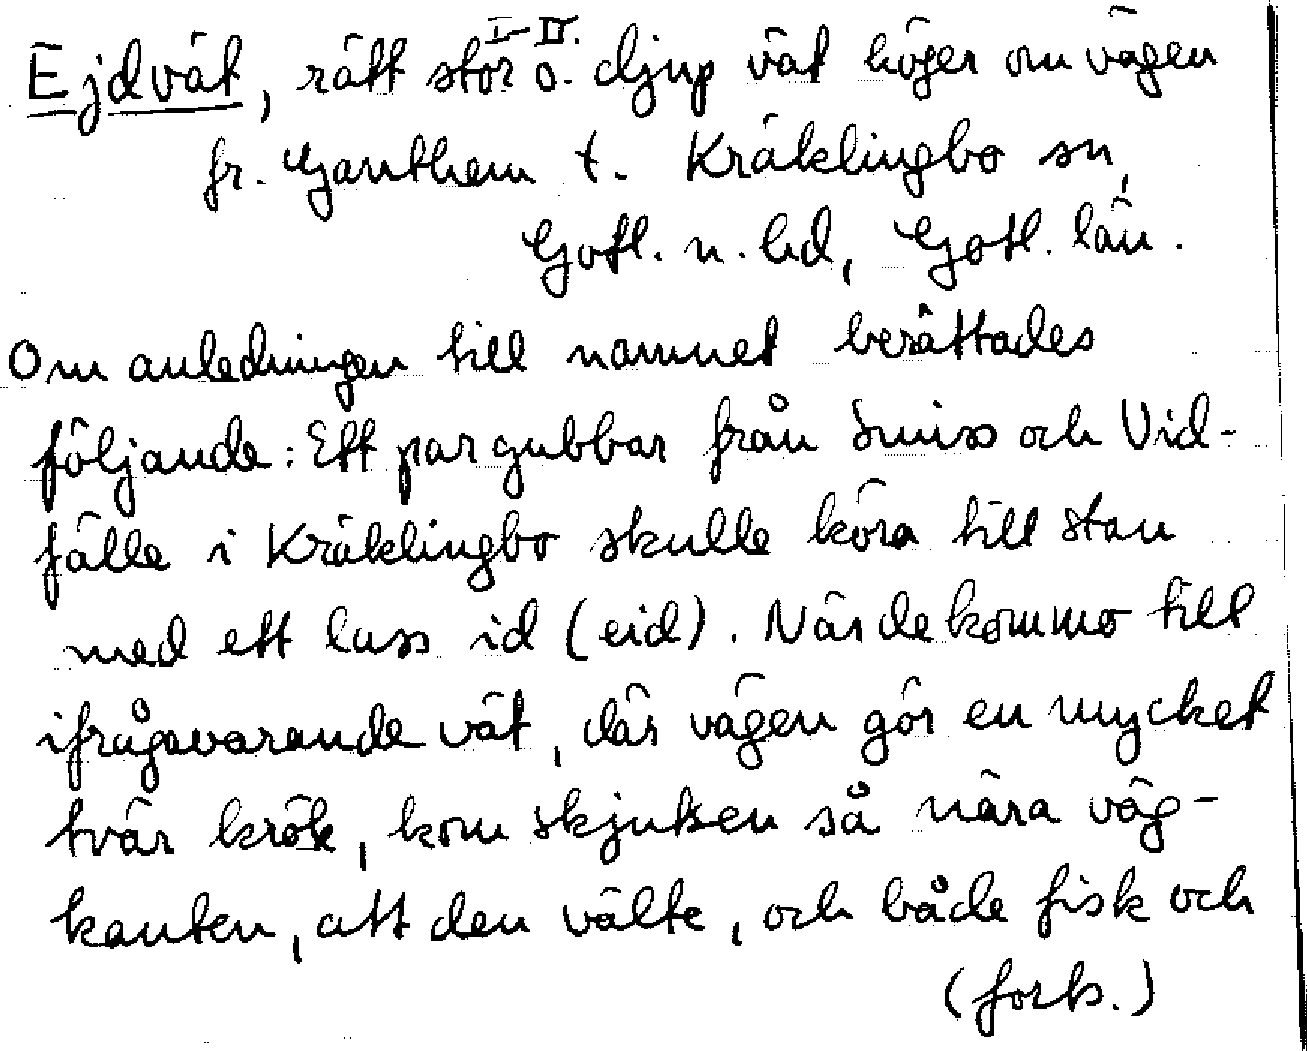 I-II.
Ejdvät, rätt stor o. djup vät höger om vägen
fr. Ganthem t. Kräklingbo sn,
Gotl. n. hd, Gotl. län.
Om anledningen till namnet berättades
följande: Ett par gubbar från Smiss och Vid-
fälle i Kräklingbo skulle köra till stan
med ett lass id (eid). När de kommo till
ifrågavarande vät, där vägen gör en mycket
tvär krök, kom skjutsen så nära väg-
kanten, att den välte, och både fisk och
(forts.)